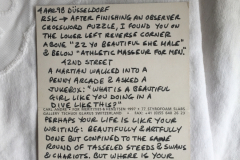 4 APR 98 DÜSSELDORF
RSK → AFTER FINISHING AN OBSERVER
CROSSWORD PUZZLE, I FOUND YOU ON
THE LOWER LEFT REVERSE CORNER
ABOVE "22 YO BEAUTIFUL SHE MALE"
& BELOW "ATHLETIC MASSEUR FOR MEN."
42ND STREET
A MARTIAN WALKED INTO A
PENNY ARCADE & ASKED A
JUKEBOX: "WHAT IS A BEAUTIFUL
GIRL LIKE YOU DOING IN A
DIVE LIKE THIS?"
PERHAPS YOUR LIFE IS LIKE YOUR
WRITING: BEAUTIFULLY & ARTFULLY
DONE BUT CONFINED TO THE SAME
ROUND OF TASSELED STEEDS & SWANS
& CHARIOTS. BUT WHERE IS YOUR